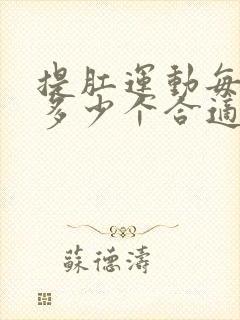 提肛運動每
多少个合適
蘇德濤